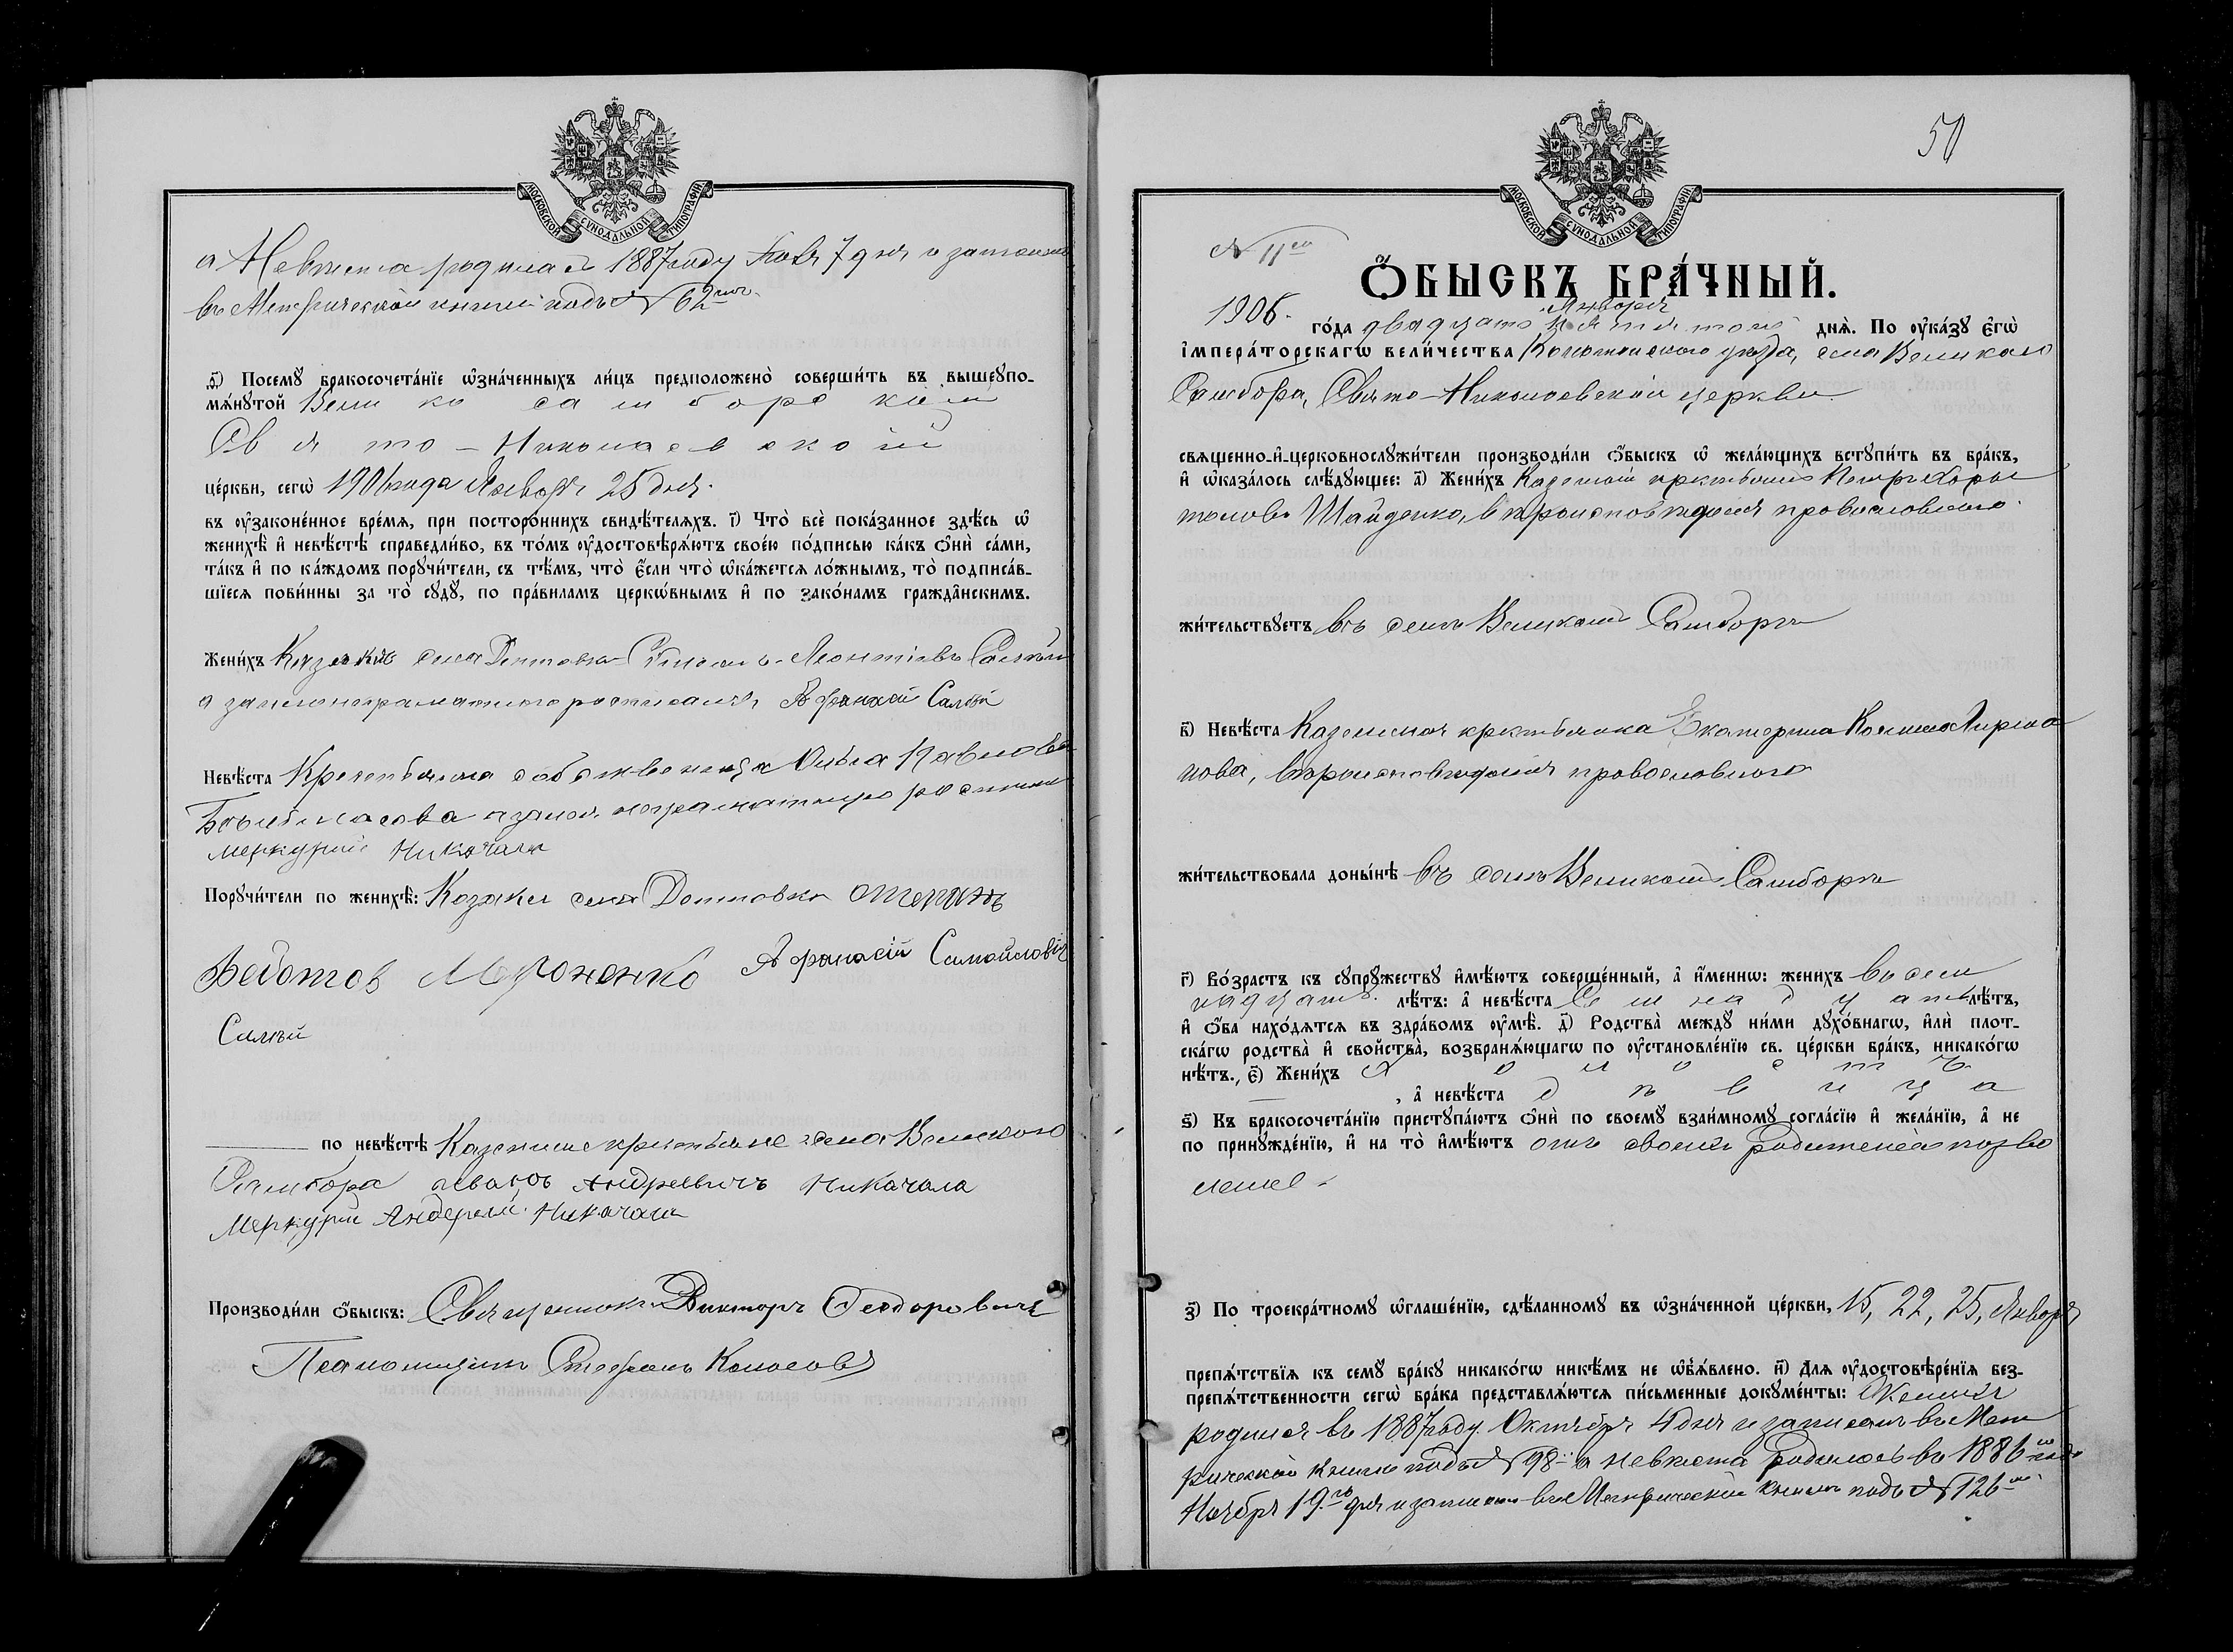 МОСКОВСКОЙ СУНОДАЛЬНОЙ ТИПОГРАФІИ
а Невѣста родилась 1887 году 7 дня и записана
въ Метрической книгѣ подъ № 62
ѳ҃) Посемꙋ̀ бракосочета́нїе ѡ҆зна́ченныхъ ли́цъ предположено̀ соверши́ть въ вышеꙋпо-
мѧ́нꙋтой Велико самборской
Свято-Николаевской
це́ркви, сегѡ̀ 1906 года Января 25 дня.
въ ᲂу҆законе́нное вре́мѧ, при посторо́ннихъ свидѣ́телѧхъ. і҃) Что̀ всѐ пока́занное здѣ́сь ѡ҆
женихѣ̀ и҆ невѣ́стѣ справедли́во, въ то́мъ ᲂу҆достовѣрѧ́ютъ свое́ю по́дписью ка́къ ѻ҆нѝ са́ми,
та́къ и҆ по ка́ждомъ порꙋчи́тели, съ тѣ́мъ, что̀ є҆́сли что̀ ѡ҆ка́жетсѧ ло́жнымъ, то̀ подписа́в-
шїесѧ пови́нны за то̀ сꙋдꙋ̀, по пра́виламъ церкѡ́внымъ и҆ по зако́намъ гражда̂нскимъ.
Жени́хъ Козакъ села Дептовки Леонтіевъ Салій
а за него неграмотнаго росписался Афанасій Салій
Невѣ́ста Крестьянка собственница Ольга Павлова
а за нея неграмотную росписался
Меркурій Никочала
Порꙋчи́тели по женихѣ̀: Козаки села Дептовки Степанъ
Федотов Мироненко Афанасій Самойловичъ
Салій
по невѣ́стѣ Казенные крестьяне села Великого
Самбора Иванъ Андреевичъ Никачала
Меркурій Андреевъ Никачала
Производи́ли ѻ҆́быскъ: Священникъ Викторъ Ѳеодоровичъ
Псаломщикъ Стефанъ Колосовъ
50
МОСКОВСКОЙ СУНОДАЛЬНОЙ ТИПОГРАФІИ
№ 11
Ѻ҆́БЫСКЪ БРА́ЧНЫЙ.
Января
1906. го́да двадцать пятого днѧ̀. По ᲂу҆ка́зꙋ є҆гѡ̀
і҆мпера́торскагѡ вели́чества Конотопского уѣзда, села Великаго
Самбора, Свято-Николаевской церкви
свѧще́нно-и҆-церковнослꙋжи́тели производи́ли ѻ҆́быскъ ѡ҆ жела́ющихъ встꙋпи́ть въ бра́къ,
и҆ ѡ҆каза́лось слѣ́дꙋющее: а҃) Жени́хъ Казенный крестьянинъ Петръ
Шайденко, вѣроисповѣданія православного
жи́тельствꙋетъ въ селѣ Великомъ Самборѣ
в҃) Невѣ́ста Казенная крестьянка Екатерина Косьмо
нова, вѣроисповѣданія православного
жи́тельствовала доны́нѣ въ селѣ Великомъ Самборѣ
г҃) Во́зрастъ къ сꙋпрꙋ́жествꙋ и҆мѣ́ютъ соверше́нный, а҆ и҆́меннѡ: жени́хъ восем
надцать лѣ́тъ: а҆ невѣ́ста Семнадцать лѣ́тъ,
и҆ ѻ҆́ба нахо́дѧтсѧ въ здра́вомъ ᲂу҆мѣ̀. д҃) Родства̀ междꙋ̀ ни́ми дꙋхо́внагѡ, и҆лѝ плот-
ска́гѡ родства̀ и҆ свойства̀, возбранѧ́ющагѡ по ᲂу҆становле́нїю св. це́ркви бра́къ, никако́гѡ
нѣ́тъ. є҃) Жени́хъ Холостъ
, а҆ невѣ́ста дѣвица
ѕ҃) Къ бракосочета́нїю пристꙋпа́ютъ ѻ҆нѝ по своемꙋ̀ взаи́мномꙋ согла́сїю и҆ жела́нїю, а҆ не
по принꙋжде́нїю, и҆ на то̀ и҆мѣ́ютъ отъ своихъ родителей позво
леніе.
з҃) По троекра́тномꙋ ѡ҆глаше́нїю, сдѣ́ланномꙋ въ ѡ҆зна́ченной це́ркви, 15, 22, 25, Января
препѧ́тствїѧ къ семꙋ̀ бра́кꙋ никако́гѡ никѣ́мъ не ѡ҆б̾ѧ́влено. и҃) Длѧ ᲂу҆достовѣре́нїѧ без-
препѧ́тственности сегѡ̀ бра́ка представлѧ́ютсѧ пи́сьменные докꙋме́нты: Женихъ
родился въ 1887 году Октября 4 дня и записанъ въ Мет
рической книгѣ подъ № 98 а невѣста родилась въ 1886 году
Ноября 19 дня и записана въ Метрической книгѣ подъ № 126